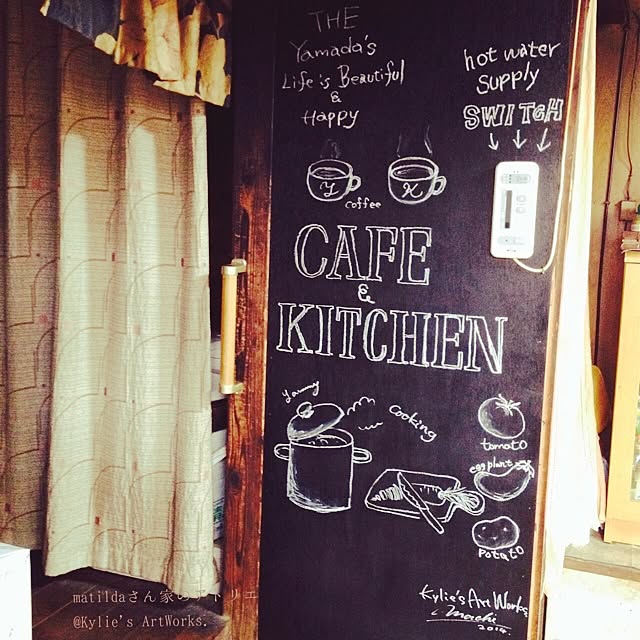 THE
Yamada's
Life is Beautiful
&
Happy
hot water
Supply
SWITCH
Y
K
coffee
CAFE
&
KITCHEN
Yammy
Cooking
tomato
eggplant
Potato
Kylie's Art Works.
Machi
2014
matildaさん家のアトリエ
@Kylie's ArtWorks.